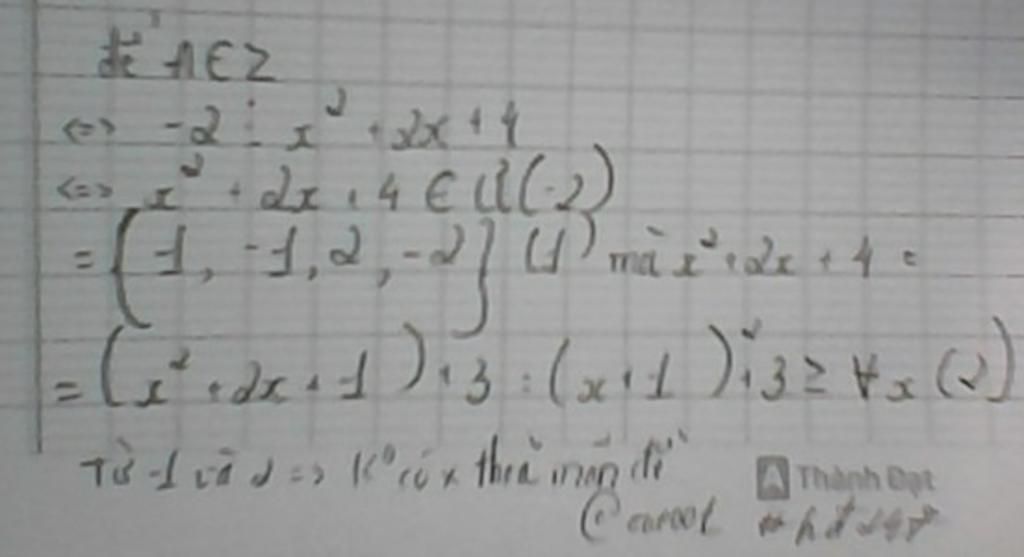 để A ∈ Z
<=> -2 ⋮ x² + 2x + 4
<=> x² + 2x + 4 ∈ Ư(-2)
= {1, -1, 2, -2} (1) mà x² + 2x + 4 =
= (x² + 2x + 1) + 3 = (x + 1)² + 3 ≥ ∀x (2)
Từ 1 và 2 => K° có x thoả mãn đề
Thành Đạt